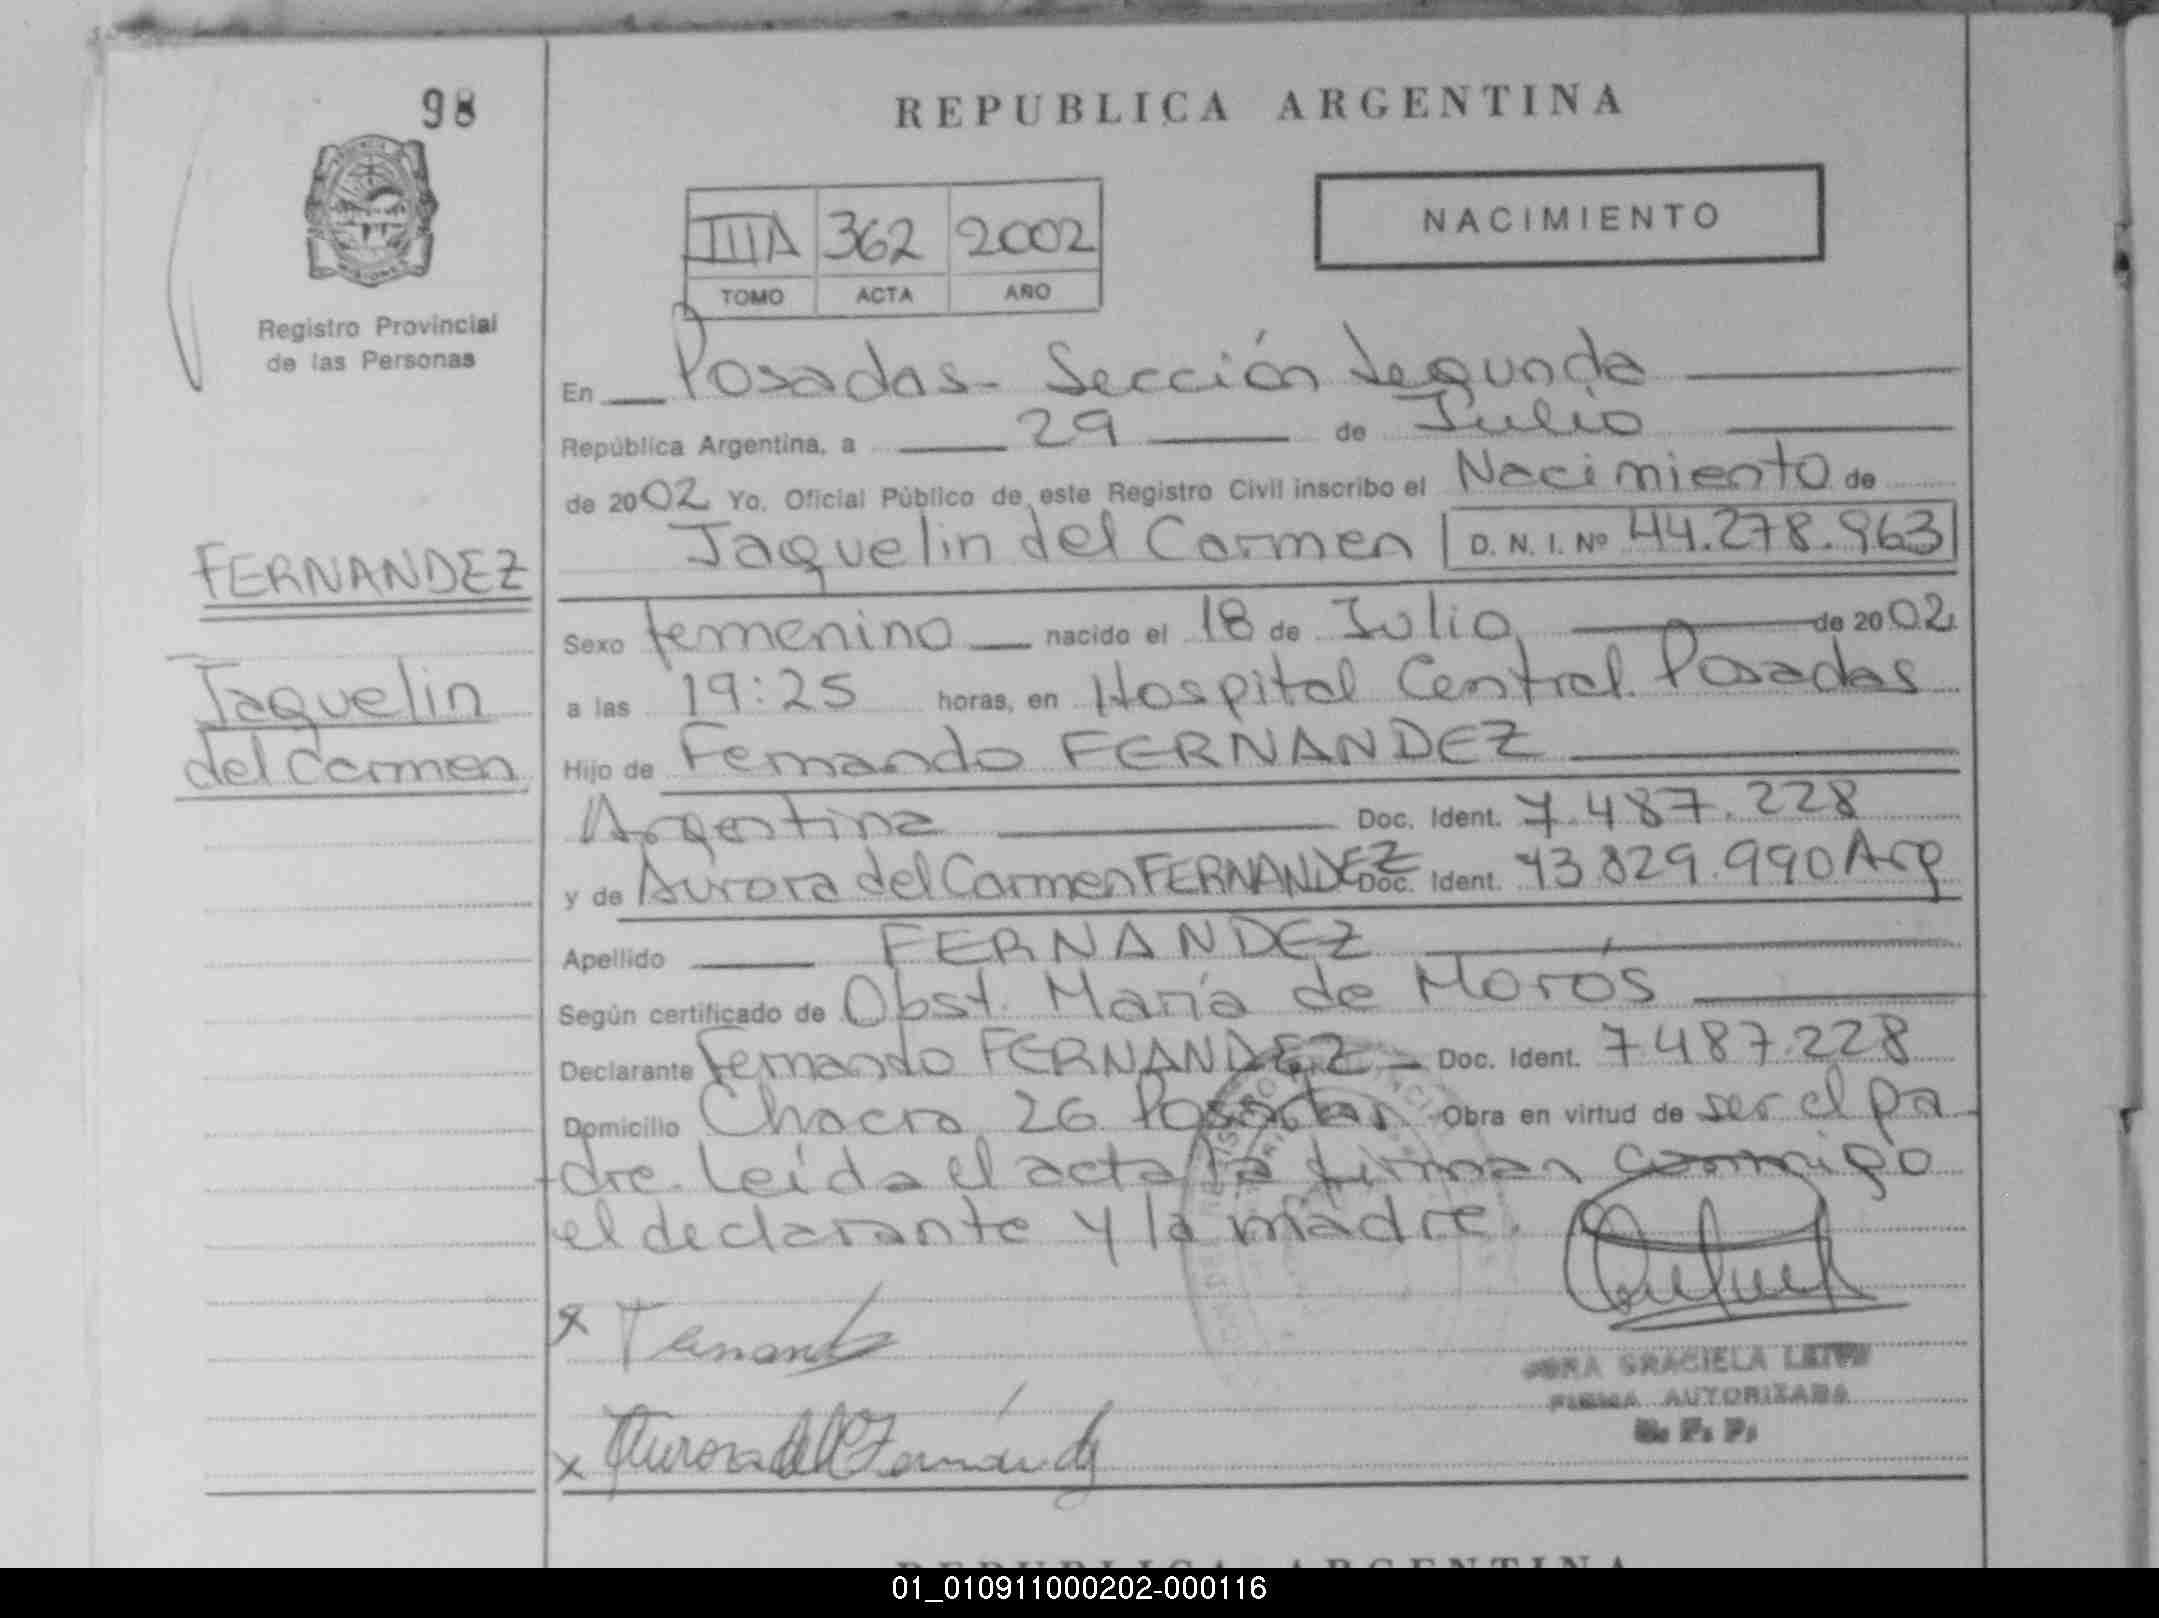 98
REPUBLICA ARGENTINA
NACIMIENTO
IIIA 362 2002
TOMO ACTA AÑO
Registro Provincial
de las Personas
En Posadas - Sección Segunda
República Argentina, a 29 de Julio
de 2002 Yo, Oficial Público de este Registro Civil inscribo el Nacimiento de
Jaquelin del Carmen D. N. I. Nº 44.278.963
FERNANDEZ
Jaquelin
del Carmen
Sexo femenino nacido el 18 de Julio de 2002
a las 19:25 horas, en Hospital Central Posadas
Hijo de Fernando FERNANDEZ
Argentina Doc. Ident. 7.487.228
y de Aurora del Carmen FERNANDEZ Doc. Ident. 13.829.990 Arg
Apellido FERNANDEZ
Según certificado de Obst. María de Morós
Declarante Fernando FERNANDEZ - Doc. Ident. 7.487.228
Domicilio Chacra 26 Posadas Obra en virtud de ser el pa
dre. Leída el acta la firman conmigo
el declarante y la madre.
x Fernando
x Aurora del C Fernández
GRACIELA
FIRMA AUTORIZADA
R. P. P.
REPUBLICA ARGENTINA
01_010911000202-000116